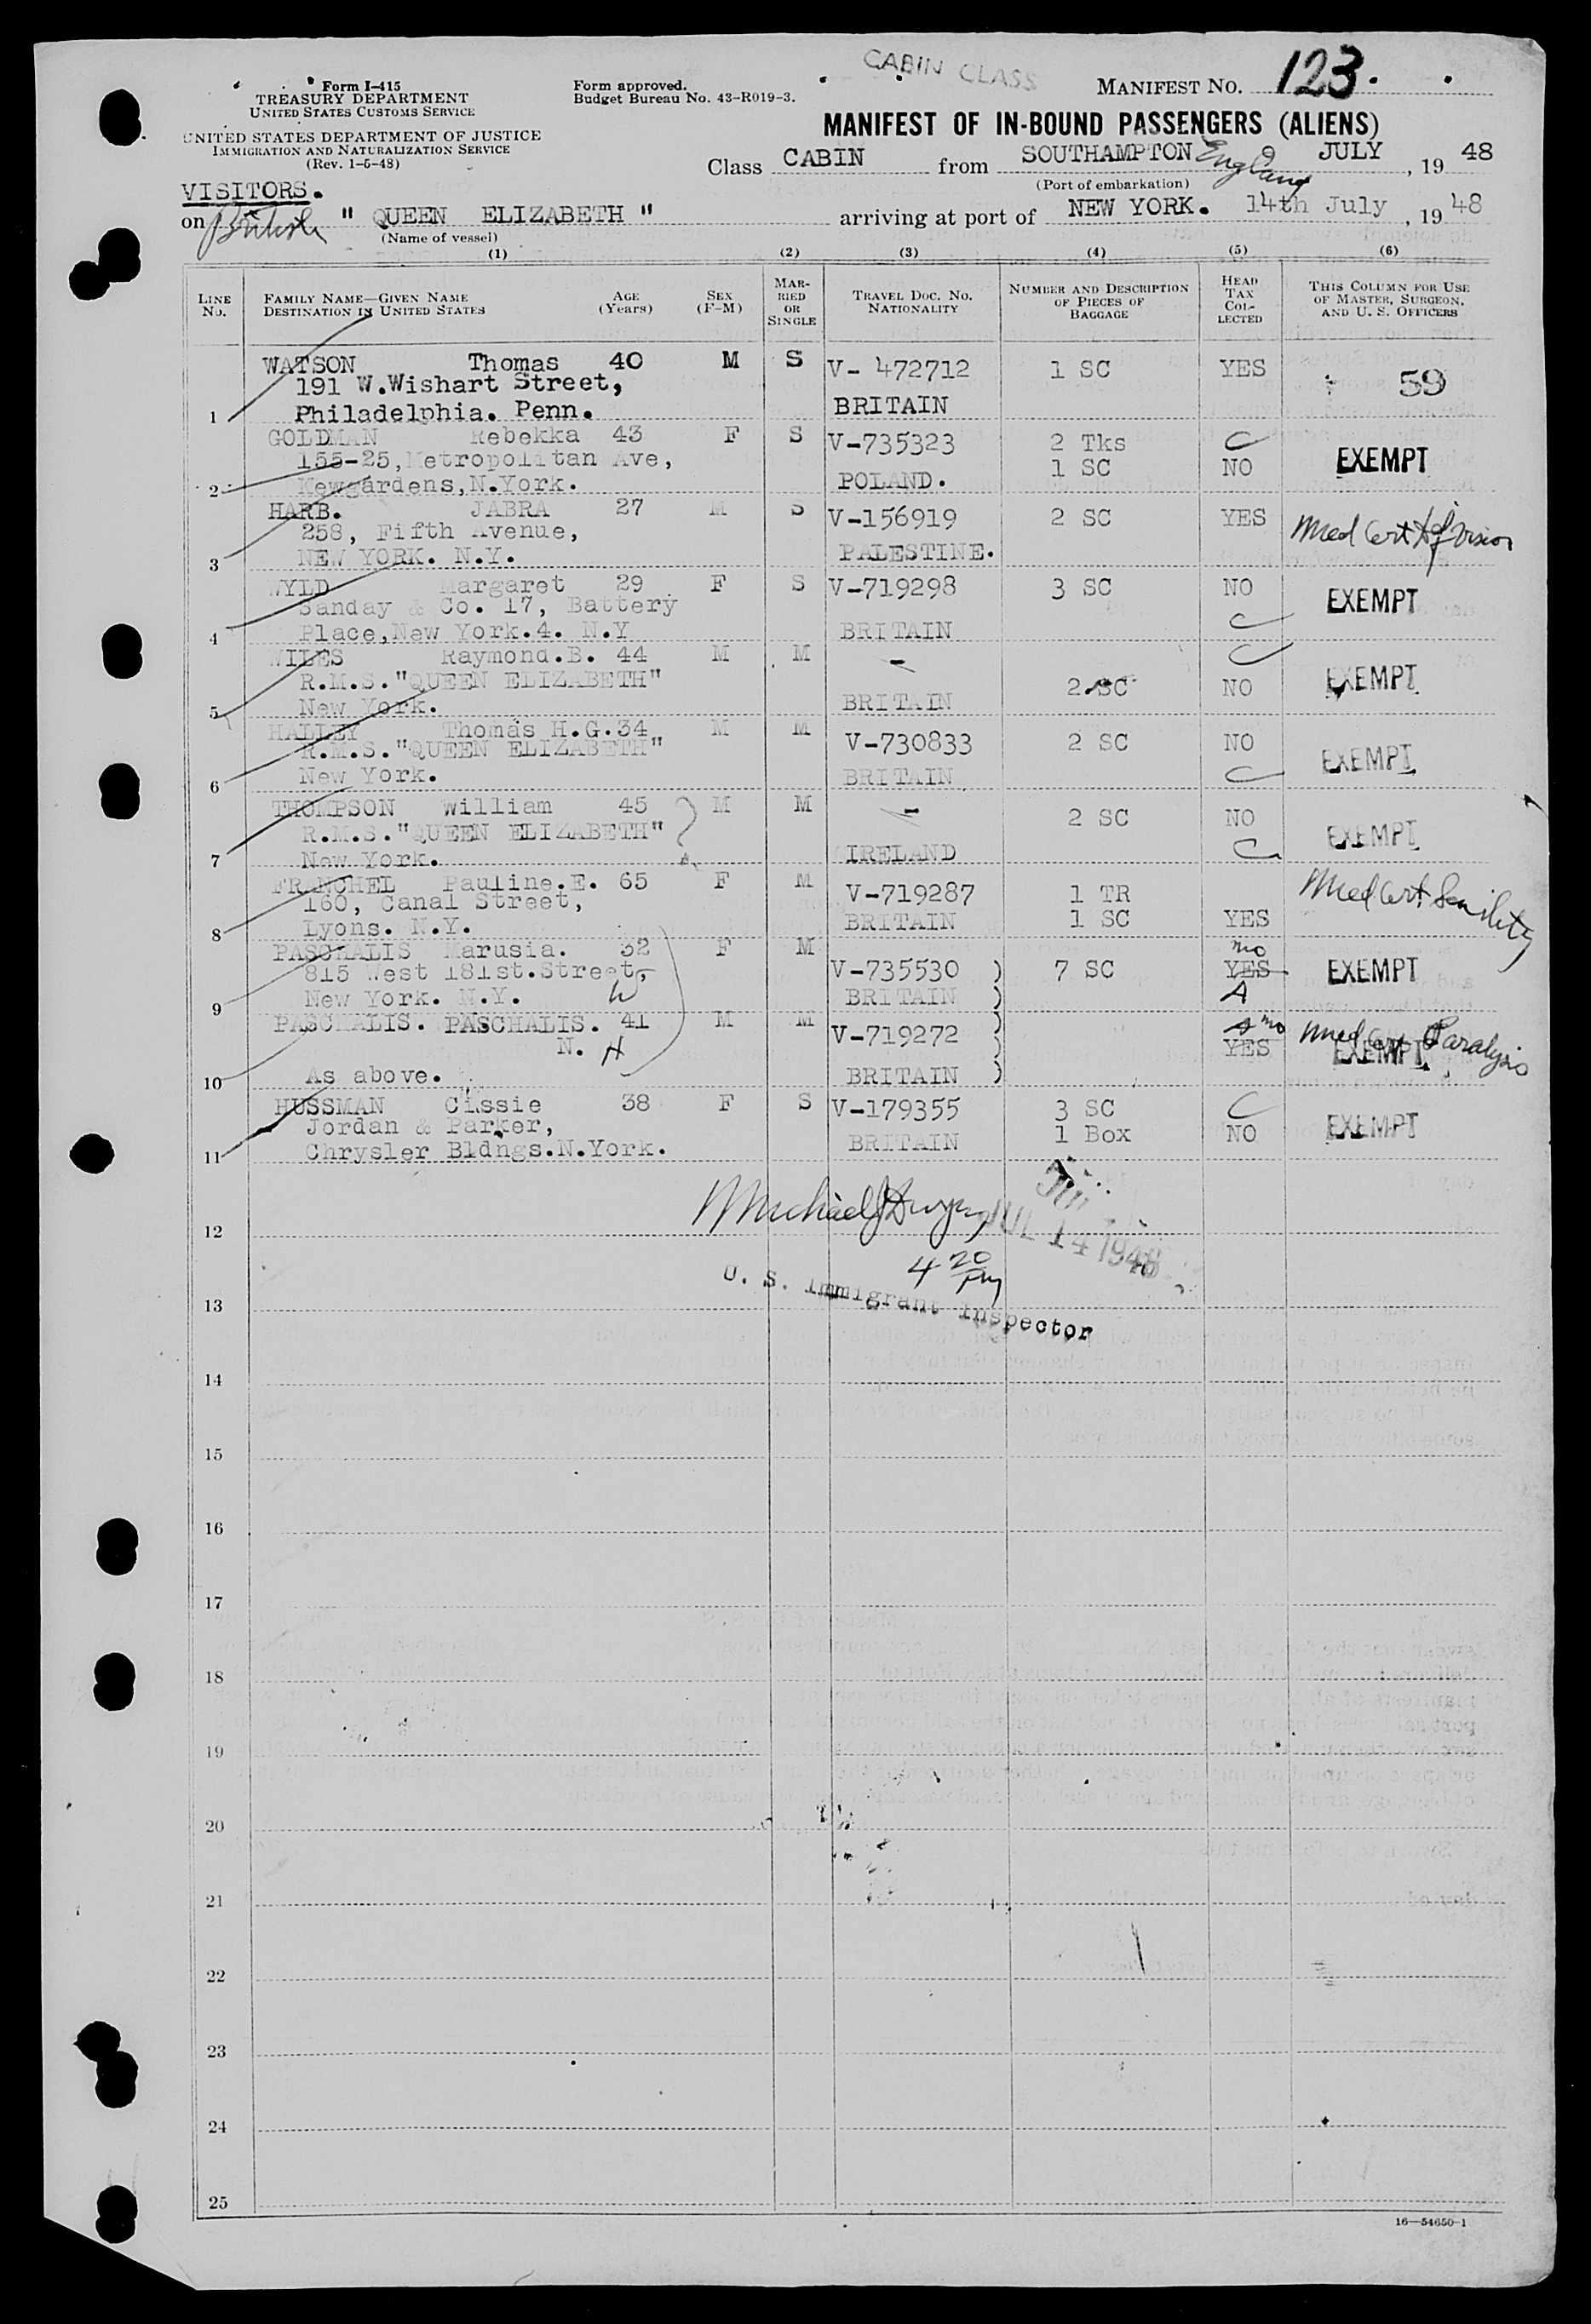 CABIN CLASS
Form I-415
TREASURY DEPARTMENT
UNITED STATES CUSTOMS SERVICE
UNITED STATES DEPARTMENT OF JUSTICE
IMMIGRATION AND NATURALIZATION SERVICE
(Rev. 1-5-48)
Form approved.
Budget Bureau No. 43-R019-3.
MANIFEST NO. 123.
MANIFEST OF IN-BOUND PASSENGERS (ALIENS)
Class CABIN from SOUTHAMPTON England 9 JULY, 19 48
(Port of embarkation)
VISITORS.
on British " QUEEN ELIZABETH " arriving at port of NEW YORK. 14th July, 19 48
(Name of vessel)
(1) (2) (3) (4) (5) (6)
LINE No. FAMILY NAME—GIVEN NAME DESTINATION IN UNITED STATES AGE (Years) SEX (F-M) MARRIED OR SINGLE TRAVEL DOC. NO. NATIONALITY NUMBER AND DESCRIPTION OF PIECES OF BAGGAGE HEAD TAX COLLECTED THIS COLUMN FOR USE OF MASTER, SURGEON, AND U. S. OFFICERS
WATSON Thomas 40 M S V- 472712 1 SC YES 59
191 W.Wishart Street,
1 Philadelphia. Penn. BRITAIN
GOLDMAN Rebekka 43 F S V-735323 2 Tks C
155-25, Metropolitan Ave, 1 SC NO EXEMPT
2 Kewgardens,N.York. POLAND.
HARB. JABRA 27 M S V-156919 2 SC YES Med Cert Df Vision
258, Fifth Avenue,
3 NEW YORK. N.Y. PALESTINE.
WYLD Margaret 29 F S V-719298 3 SC NO EXEMPT
Sanday & Co. 17, Battery
4 Place,New York.4. N.Y BRITAIN C
WILES Raymond.B. 44 M M - C
R.M.S."QUEEN ELIZABETH" 2 SC NO EXEMPT
5 New York. BRITAIN
HALLEY Thomas H.G.34 M M V-730833 2 SC NO
R.M.S."QUEEN ELIZABETH" EXEMPT
6 New York. BRITAIN C
THOMPSON William 45 M M - 2 SC NO
R.M.S."QUEEN ELIZABETH" EXEMPT
7 New York. IRELAND C
FRANCHEL Pauline.E. 65 F M V-719287 1 TR Med Cert Senility
160, Canal Street,
8 Lyons. N.Y. BRITAIN 1 SC YES
PASCHALIS Marusia. 32 F M no
815 West 181st.Street, V-735530 7 SC YES EXEMPT
9 New York. N.Y. W BRITAIN A
PASCHALIS. PASCHALIS. 41 M M V-719272 A no Med Cert Paralysis
N. H YES EXEMPT
10 As above. BRITAIN
HUSSMAN Cissie 38 F S V-179355 3 SC C
Jordan & Parker, 1 Box NO EXEMPT
11 Chrysler Bldngs.N.York. BRITAIN
12 Michael J Dwyer JUL 14 1948
4 20 PM
U. S. Immigrant Inspector
13
14
15
16
17
18
19
20
21
22
23
24
25
16—54650-1